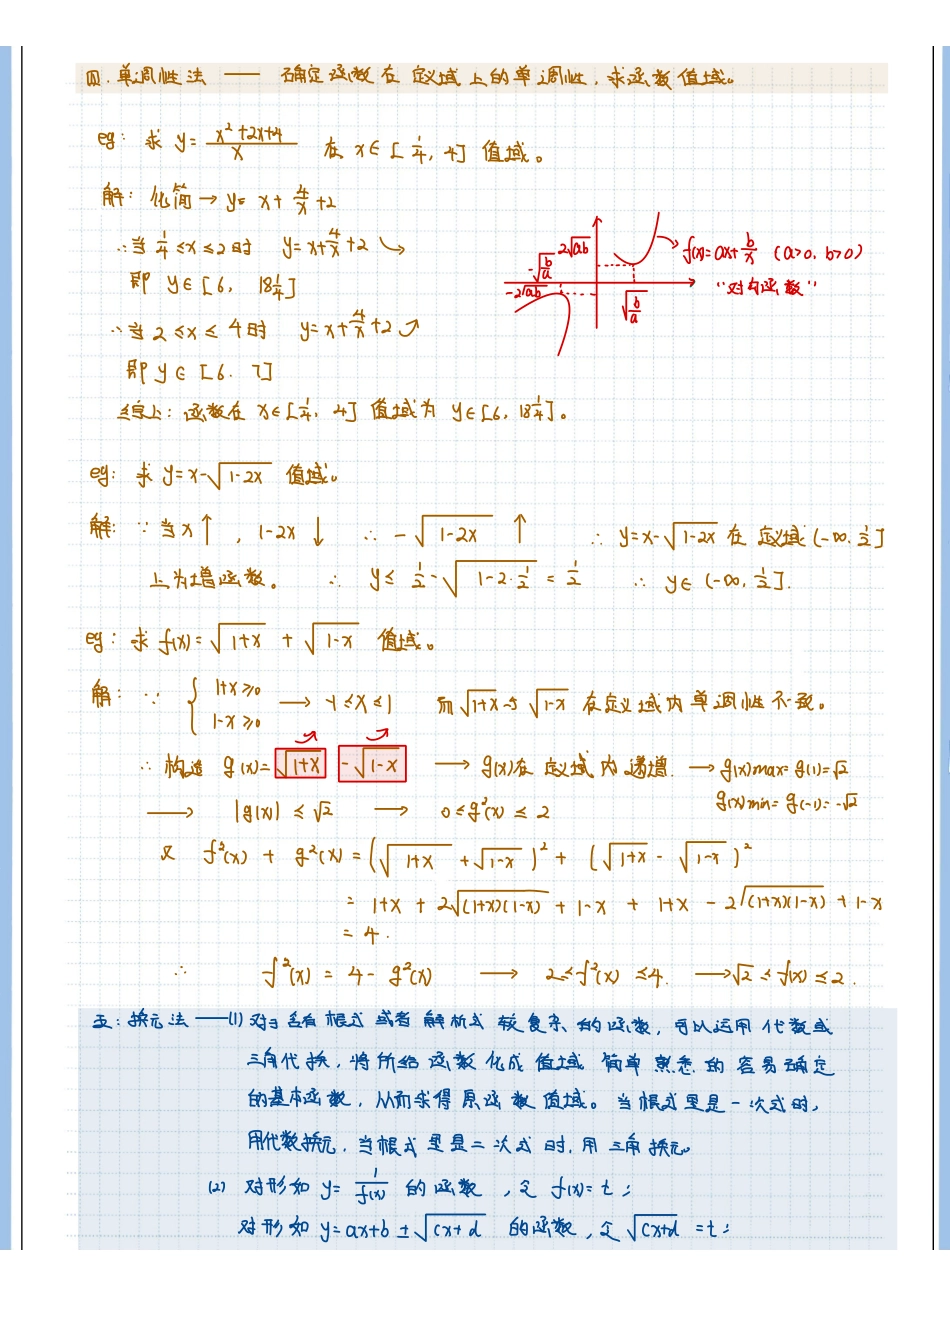 四. 单调性法 —— 确定函数在定义域上的单调性, 求函数值域。
eg: 求 y = (x²+2x+4)/x 在 x∈[1/4, 4] 值域。
解: 化简 → y = x + 4/x + 2
∴当 1/4 ≤ x ≤ 2 时 y = x + 4/x + 2 ↘
即 y∈[6, 18 1/4]
∴当 2 ≤ x ≤ 4 时 y = x + 4/x + 2 ↗
即 y∈[6, 7]
综上: 函数在 x∈[1/4, 4] 值域为 y∈[6, 18 1/4]。
2√ab
-√(b/a)
-2√ab
√(b/a)
f(x) = ax + b/x (a>0, b>0)
"对勾函数"
eg: 求 y = x-√(1-2x) 值域。
解: ∵ 当 x↑, 1-2x↓ ∴ -√(1-2x) ↑ ∴ y = x-√(1-2x) 在定义域 (-∞, 1/2]
上为增函数。 ∴ y ≤ 1/2 - √(1-2·1/2) = 1/2 ∴ y∈(-∞, 1/2].
eg: 求 f(x) = √(1+x) + √(1-x) 值域。
解: ∵ { 1+x≥0
1-x≥0 → -1≤x≤1 而 √(1+x) 与 √(1-x) 在定义域内单调性不一致。
∴ 构造 g(x) = √(1+x) - √(1-x) → g(x)在定义域内递增. → g(x)max = g(1) = √2
g(x)min = g(-1) = -√2
→ |g(x)| ≤ √2 → 0 ≤ g²(x) ≤ 2
又 f²(x) + g²(x) = (√(1+x) + √(1-x))² + (√(1+x) - √(1-x))²
= 1+x + 2√((1+x)(1-x)) + 1-x + 1+x - 2√((1+x)(1-x)) + 1-x
= 4.
∴ f²(x) = 4 - g²(x) → 2≤f²(x)≤4. → √2 ≤ f(x) ≤ 2.
五: 换元法 ——(1) 对于含有根式或者解析式较复杂的函数, 可以运用代数或
三角代换, 将所给函数化成值域简单熟悉的容易确定
的基本函数, 从而求得原函数值域。当根式里是一次式时,
用代数换元, 当根式里是二次式时, 用三角换元。
(2) 对形如 y = 1/f(x) 的函数, 令 f(x) = t;
对形如 y = ax+b ± √(cx+d) 的函数, 令 √(cx+d) = t;